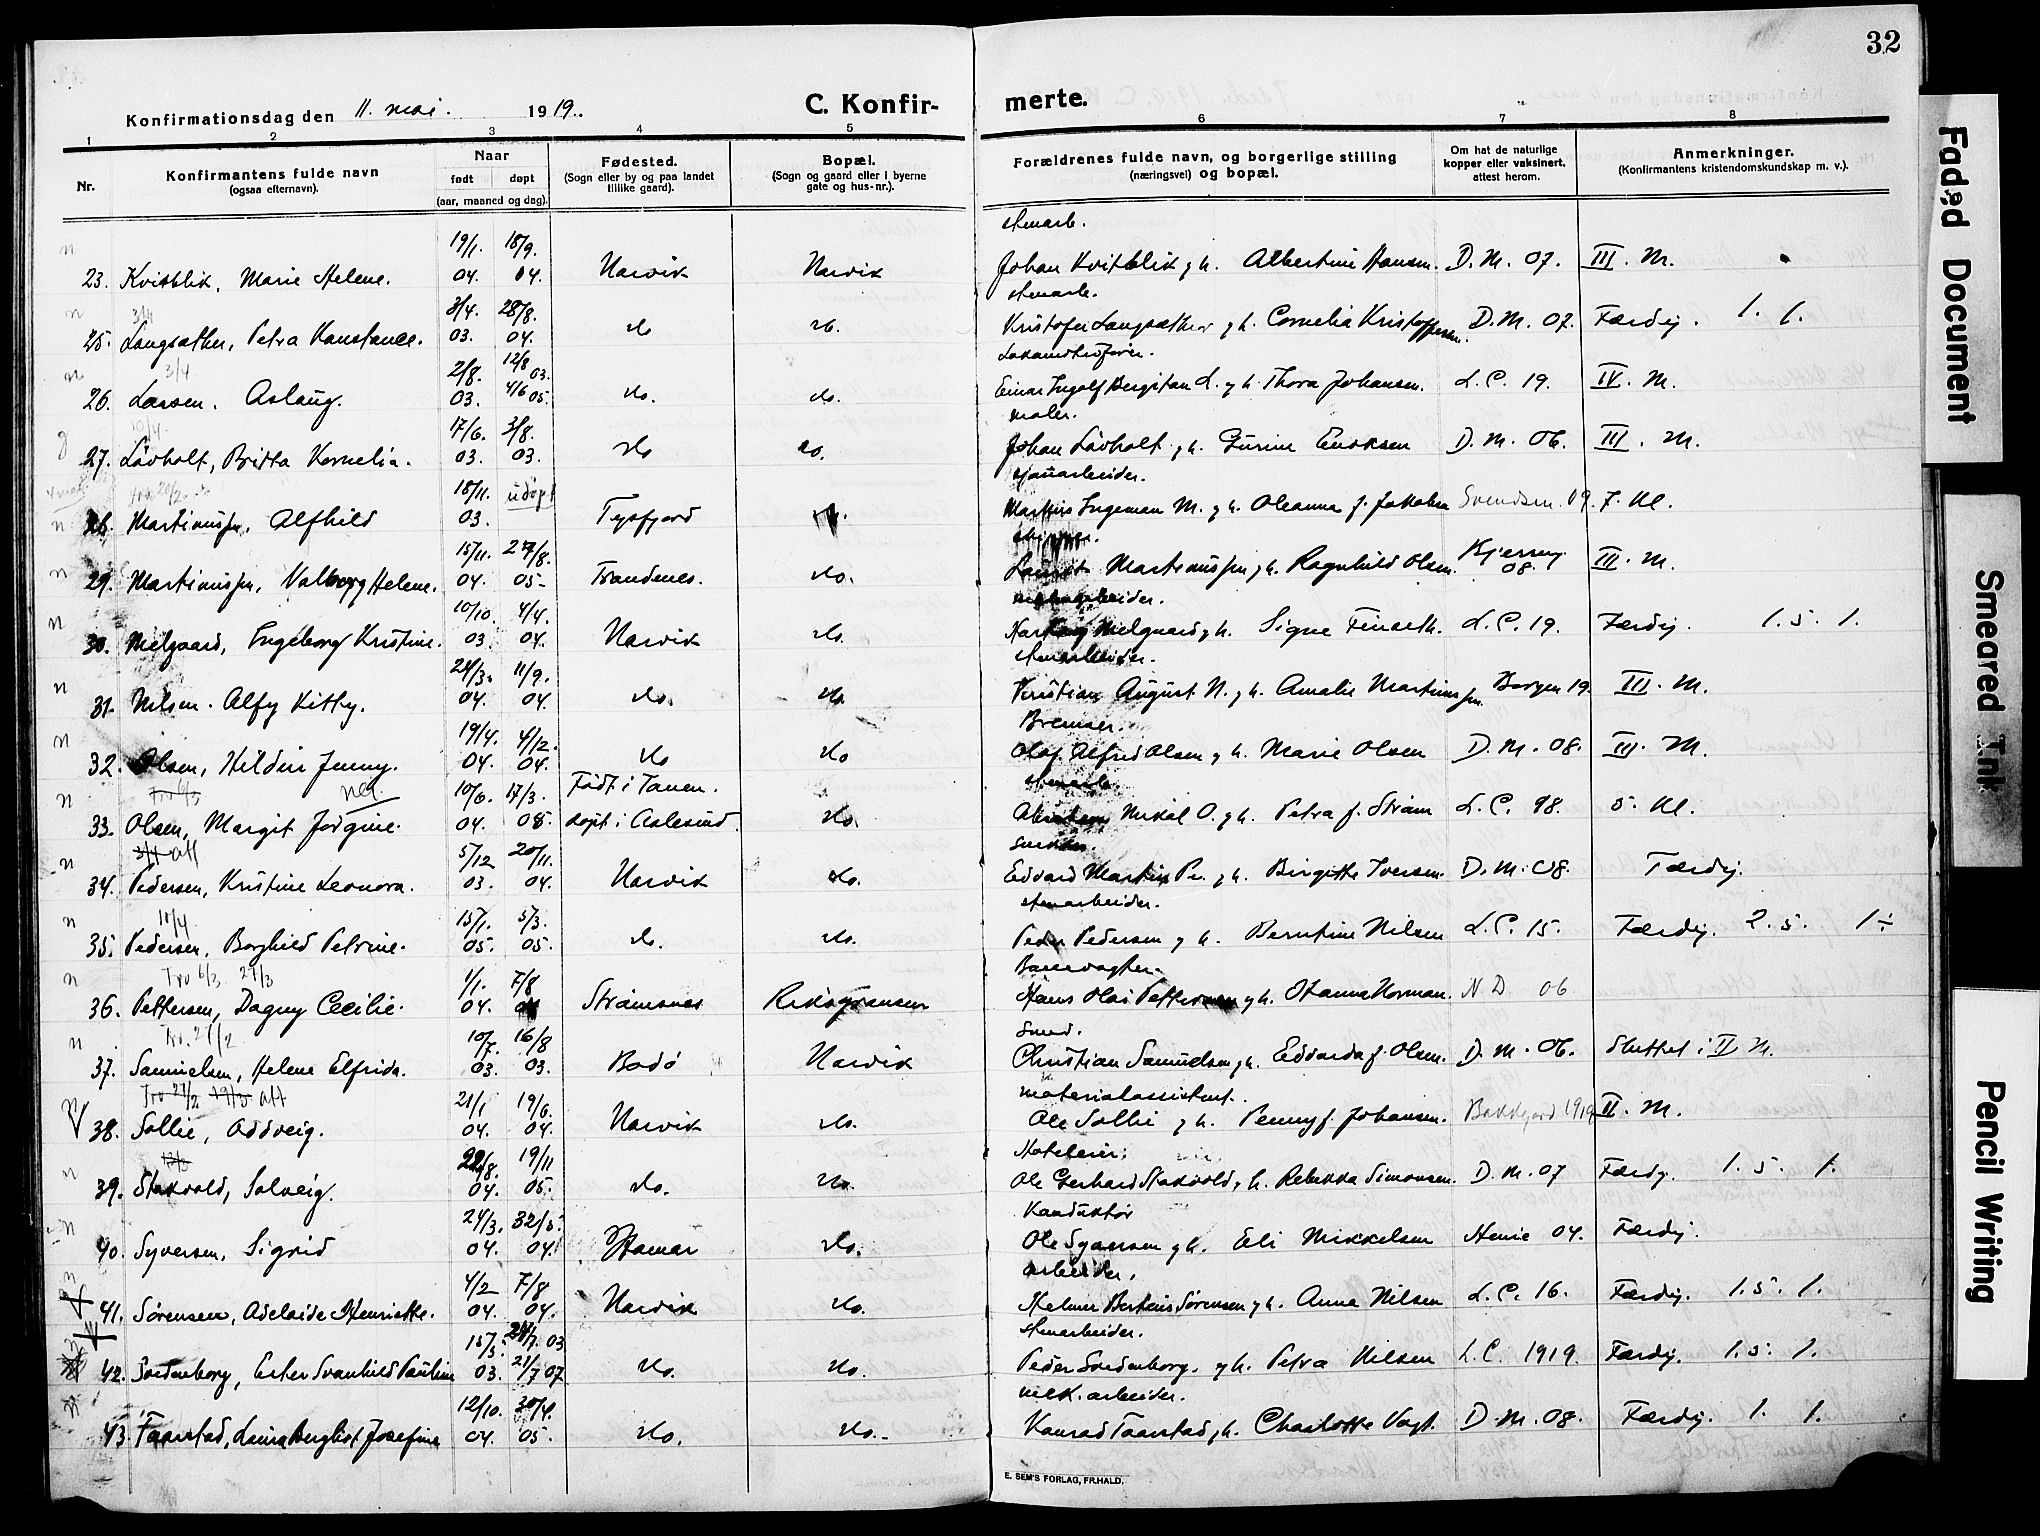 32
Konfirmationsdag den 11. mai. 1919.
C. Konfirmerte.
1 2 3 4 5 6 7 8
Nr.
Konfirmantens fulde navn
(ogsaa efternavn).
Naar
født døpt
(aar, maaned og dag).
Fødested.
(Sogn eller by og paa landet
tillike gaard).
Bopæl.
(Sogn og gaard eller i byerne
gate og hus-nr.).
Forældrenes fulde navn, og borgerlige stilling
(næringsvei) og bopæl.
Om hat de naturlige
kopper eller vaksinert,
attest herom.
Anmerkninger.
(Konfirmantens kristendomskundskap m. v.).
19/1. 18/9. stenarb.
23. Kvitblik, Marie Helene. 04. 04. Narvik Narvik Johan Kvitblik g h. Albertine Hansen. D.M. 07. III. M.
3/4. 28/8. stenarb.
25. Langsæther, Petra Konstance. 03. 04. do do. Kristofer Langsæther g h. Cornelia Kristoffersen. D.M. 07. Færdig. 1. 1.
3/4 2/8. 12/8 03. Lokomotivfører.
26. Larsen. Aslaug. 03. 4/6 05. do. do. Einar Ingolf Bergitan L. g h. Thora Johansen. L.C. 19. IV. M.
10/4. 17/6. 3/8. maler.
27. Løvholt, Britta Kornelia. 03. 03. do do. Johan Løvholt g h. Gurine Enoksen D.M. 06. III. M.
18/11. udøpt sjauarbeider.
28. Martinussen, Alfhild 03. Tysfjord Ingeman M. g h. Oleanna f. Jakobsen Svendsen. 19. 7. Kl.
15/11. 27/8.
29. Martinussen, Valborg Helene. 04. 05. Trandenes. do. Laurits Martinussen g h. Ragnhild Olsen. 08. III. M.
10/10. 4/4.
30. Melgaard, Ingeborg Kristine. 03. 04. Narvik do. Melgaard g h. Signe L.C. 19. Færdig. 1. 5. 1.
24/3. 11/9. stenarbeider.
31. Nilsen. Alfy Kitty. 04. 04. do. do. Kristian August N. g h. Amalie Martinussen. Borgen 19. III. M.
19/4. 4/12. Bremser.
32. Olsen, Hildur Jenny. 04. 04. do do Olaf Alfred Olsen g h. Marie Olsen D.M. 08. III. M.
10/6. 17/3. Født i Tanen. stenarb.
33. Olsen, Margit Jørgine. 04. 05. døpt i Aalesund. do. Mikal O. g h. Petra f. Strøm L.C. 98. 5. Kl.
5/12 20/11. snekker.
34. Pedersen, Kristine Leonora. 03. 04. Narvik do. Edvard Martin Pe. g h. Birgitte Iversen. D.M. 08. Færdig.
10/4 15/1. 5/3. stenarbeider.
35. Pedersen, Borghild Petrine. 05. 05. do. do. Peder Pedersen g h. Berntine Nilsen L.C. 15. Færdig. 2. 5. 1÷
Tro 6/3 27/3 1/1. 7/8 Banevogter.
36. Pettersen, Dagny Cecilie. 04. Strømsnes Riksgransen Hans Olai Pettersen g h. Norman. N D 06
Tro. 27/2 10/7. 16/8 Smed.
37. Samuelsen, Helene Elfrida. 03. 03. Bodø Narvik Christian Samuelsen g h. Edvarda f. Olsen. D.M. 06. Sluttet i II M.
Tro 27/2 19/3 att 21/1 19/6. materialassistent.
38. Sollie, Oddveig. 04. 04. Narvik do. Ole Sollie g h. Penny f. Johansen. 1919 II. M.
22/8. 19/11 Hoteleier.
39. Stokvold, Solveig. 04. 05. do. do. Ole Gerhard Stokvold g h. Rebekka Simonsen. D.M. 07 Færdig. 1. 5. 1.
24/3. Konduktør
40. Syversen, Sigrid 04. 04. Hamar do. Ole Syversen g h. Eli Mikkelsen Henie 04. Færdig.
4/2 7/8 arbeider.
41. Sørensen, Adelaide Henriette. 04. 04. Narvik do. Helmer Berteus Sørensen g h. Anna Nilsen L.C. 16. Færdig. 1. 5. 1.
15/5. 03 stenarbeider.
42. Svedenborg, Ester Svanhild Pauline 03. 21/7 07 do. do. Peder Svedenborg g h. Petra Nilsen L.C. 1919. Færdig. 1. 5. 1.
12/10. 30/4. mek. arbeider.
43. Taarstad, Laura Bergliot Josefine 04. 05. do. do. Konrad Taarstad g h. Charlotte Vogt. D.M. 08. Færdig. 1. 1.
E. SEM'S FORLAG, FR.HALD.
Faded Document
Smeared Ink
Pencil Writing